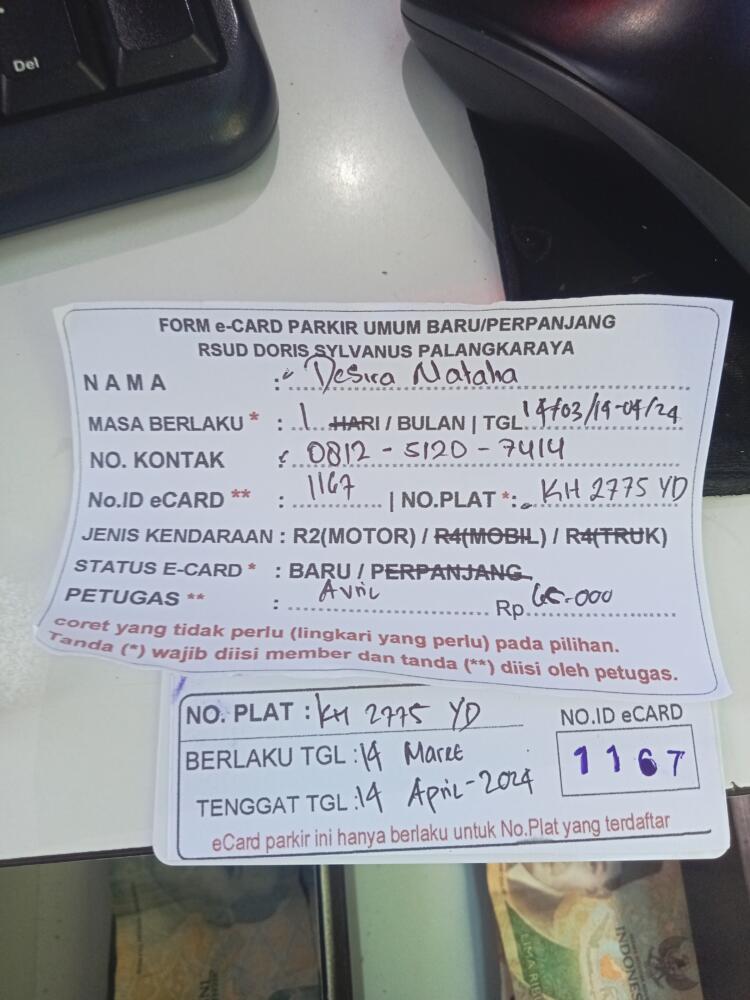 Del
FORM e-CARD PARKIR UMUM BARU/PERPANJANG
RSUD DORIS SYLVANUS PALANGKARAYA
NAMA : Desira Natalia
MASA BERLAKU * : 1 HARI / BULAN | TGL 14/03/14-04/24
NO. KONTAK : 0812 - 5120 - 7414
No.ID eCARD ** : 1167 | NO.PLAT *: KH 2775 YD
JENIS KENDARAAN : R2(MOTOR) / R4(MOBIL) / R4(TRUK)
STATUS E-CARD * : BARU / PERPANJANG
PETUGAS ** : Avril Rp. 65.000
coret yang tidak perlu (lingkari yang perlu) pada pilihan.
Tanda (*) wajib diisi member dan tanda (**) diisi oleh petugas.
NO. PLAT : KH 2775 YD
BERLAKU TGL : 14 Maret
TENGGAT TGL : 14 April-2024
NO.ID eCARD
1167
eCard parkir ini hanya berlaku untuk No.Plat yang terdaftar
LIMA
INDONES